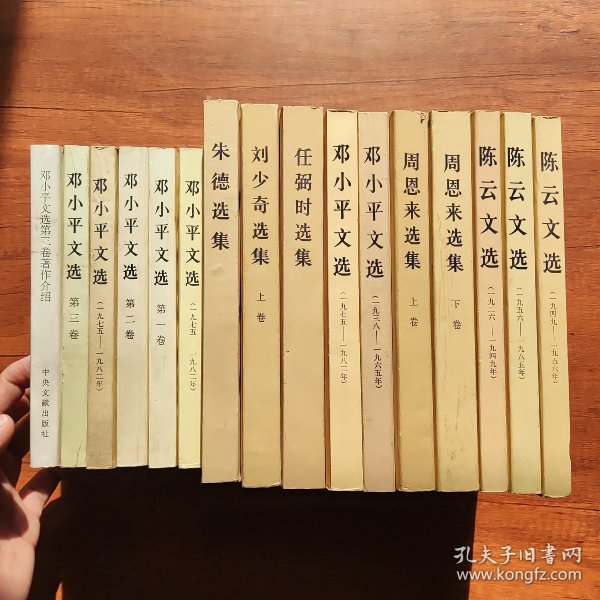 邓小平文选第三卷著作介绍
中央文献出版社
邓小平文选
第三卷
邓小平文选
(一九七五——一九八二年)
邓小平文选
第二卷
邓小平文选
第一卷
邓小平文选
(一九七五——一九八二年)
朱德选集
刘少奇选集
上卷
任弼时选集
邓小平文选
(一九七五——一九八二年)
邓小平文选
(一九三八——一九六五年)
周恩来选集
上卷
周恩来选集
下卷
陈云文选
(一九二六——一九四九年)
陈云文选
(一九五六——一九八五年)
陈云文选
(一九四九——一九五六年)
孔夫子旧书网
www.kongfz.com